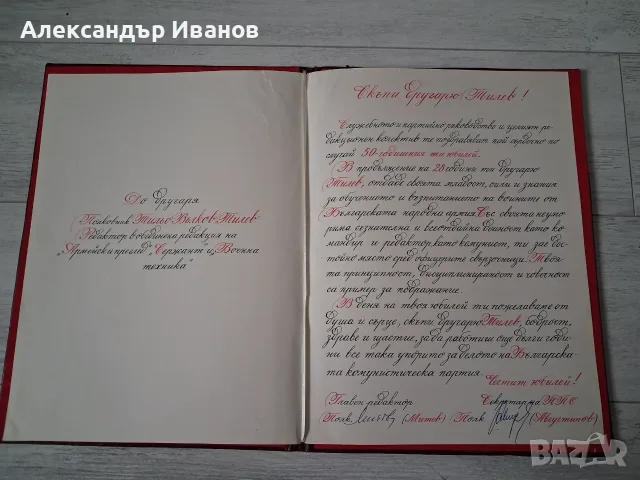 Александър Иванов
До другаря
Полковник Тильо Вълков Тилев
Редактор в обединена редакция на
„Армейски преглед", „Сержант" и „Военна
техника"
Скъпи другарю Тилев!
Служебното и партийно ръководство и целият ре-
дакционен колектив те поздравяват най сърдечно по
случай 50-годишния ти юбилей.
В продължение на 28 години ти другарю
Тилев, отдаде своята младост, сили и знания
за обучението и възпитанието на воините от
Българската народна армия. Със своята неумо-
рима съзнателна и всеотдайна дейност като ко-
мандир и редактор, като комунист, ти зае дос-
тойно място сред офицерите свързочници. Твоя-
та принципност, дисциплинираност и човечност
са пример за подражание.
В деня на твоя юбилей ти пожелаваме от
душа и сърце, скъпи другарю Тилев, бодрост,
здраве и щастие, за да работиш още дълги годи-
ни все така упорито за делото на Българска-
та комунистическа партия.
Честит юбилей!
Главен редактор Секретар на ППО
Полк. (Митев) Полк. (Августинов)
BAZAR